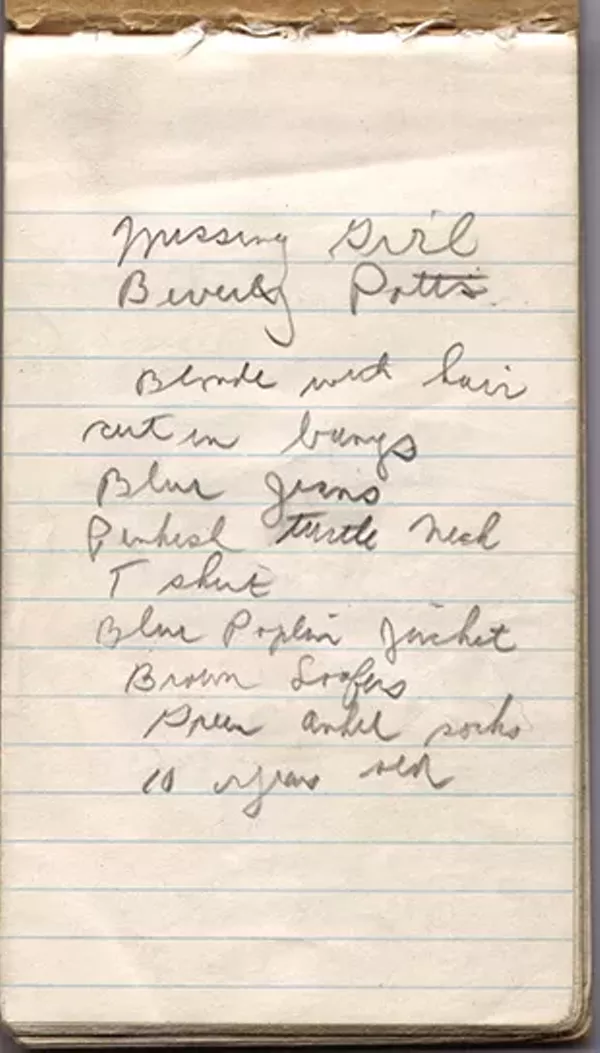 Missing Girl
Beverly Potts
Blonde with hair
cut in bangs
Blue Jeans
Pinkish turtle neck
T shirt
Blue Poplin Jacket
Brown Loafers
Green ankel socks
10 years old